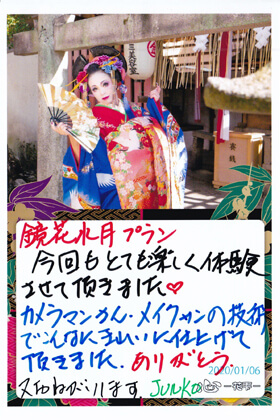 鏡花水月プラン
今回もとても楽しく体験
させて頂きました♡
カメラマンさん・メイクさんの技術
でこんなにきれいに仕上げて
頂きました。ありがとう。
又おねがいします JUNKO
2020/01/06